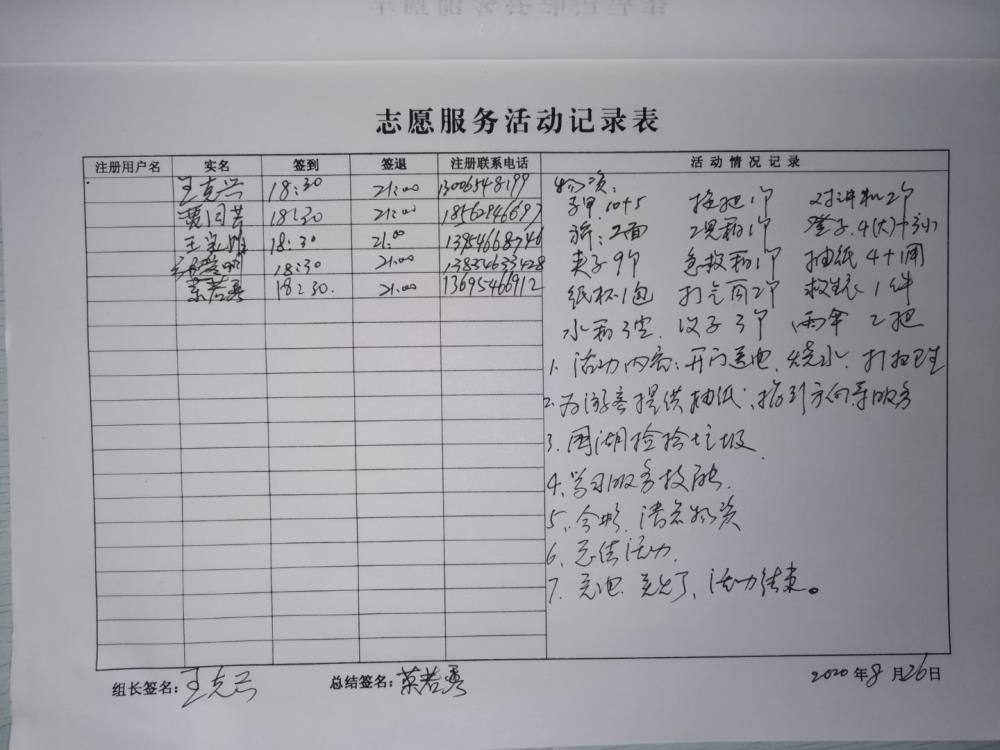 志愿服务活动记录表
注册用户名 实名 签到 签退 注册联系电话 活动情况记录
王克兴 18:30 21:00 13006548199
18:30 21:00 18562946697
王 18:30 21:00 13954668746
18:30 21:00 13834633428
荣若勇 18:30. 21:00 13695466912
物资:
马甲.10+5 拖把1个 对讲机2个
旗:2面 工具箱1个 凳子.4(大)+3小
夹子9个 急救箱1个 抽纸4+1周
纸杯1包 打气筒2个 救生衣1件
水 3 . 3个 雨伞 2把
1. 活动内容:开门送电、烧水、打扫卫生
2.为游客提供抽纸、指引方向等服务
3. 围湖捡拾垃圾.
4、学习服务技能.
5、合影、清点物资
6、总结活动.
7. 关电、关灯、活动结束。
组长签名:王克兴 总结签名:荣若勇 2020年8月26日